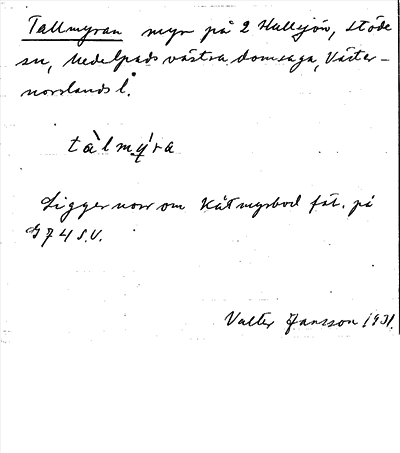 Tallmyran myr på 2 Hullsjön, Stöde
sn, Medelpads västra domsaga, Väster-
norrlands l.
tàlmýra
Ligger norr om Kåtmyrbod fäb. på
974 S.V.
Valter Jansson 1931.